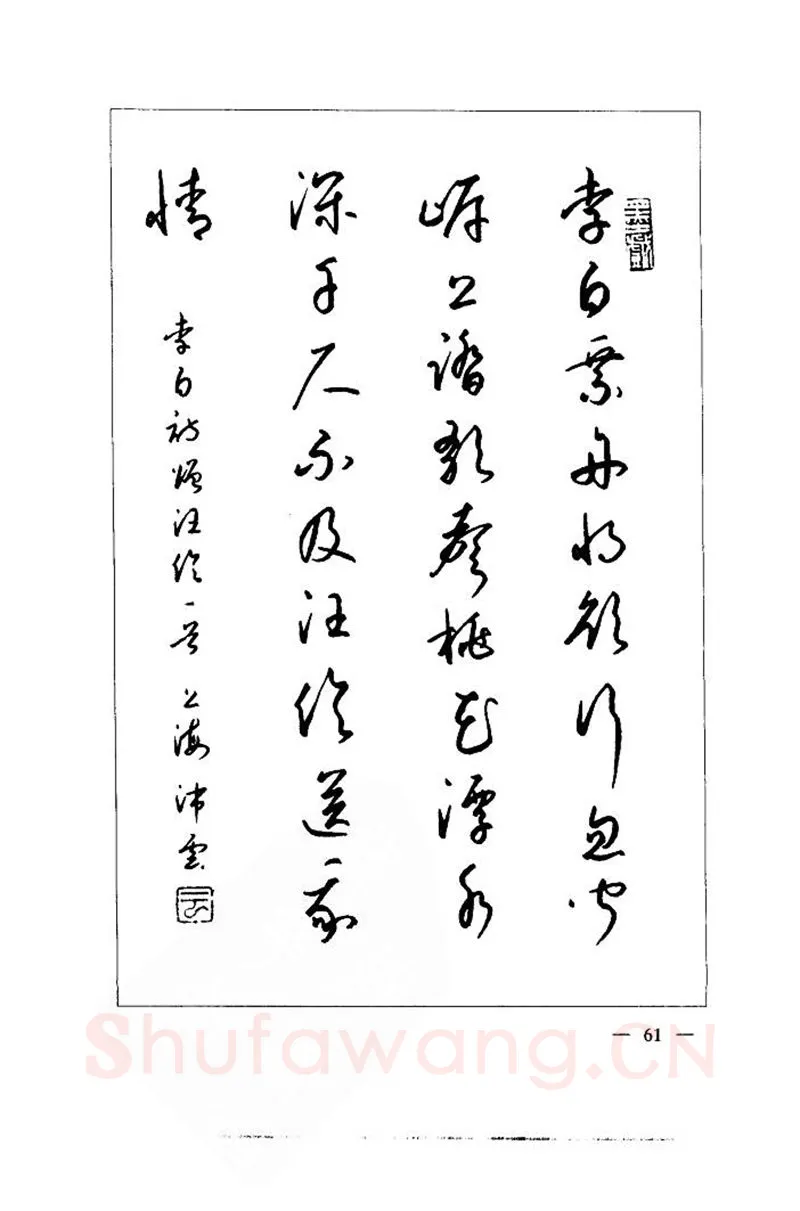 李白乘舟將欲行忽聞
岸上踏歌聲桃花潭水
深千尺不及汪倫送我
情
李白詩贈汪倫一首 上海沛雲
云
— 61 —
Shufawang.CN